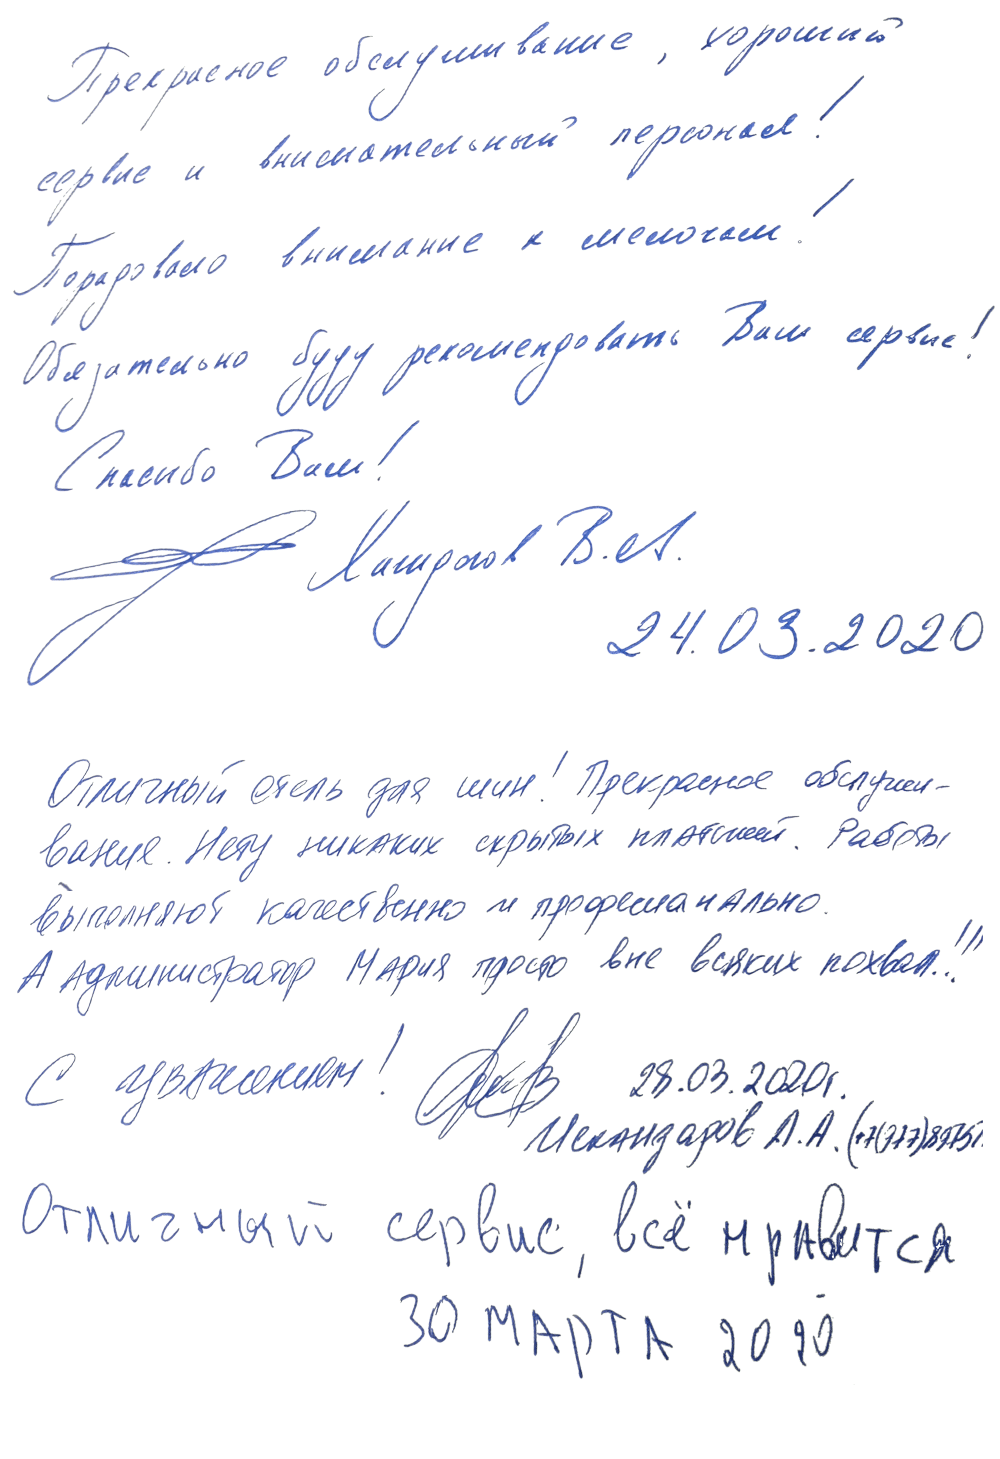 Прекрасное обслуживание, хороший
сервис и внимательный персонал!
Порадовало внимание к мелочам!
Обязательно буду рекомендовать Ваш сервис!
Спасибо Вам!
В.А.
24.03.2020
Отличный отель для шин! Прекрасное обслужи-
вание. Нету никаких скрытых платежей. Работы
выполняют качественно и профессионально.
А администратор Мария просто вне всяких похвал..!!!
С уважением! 28.03.2020г.
Искандаров А.А. (+7(777)
Отличный сервис, всё нравится
30 МАРТА 2020